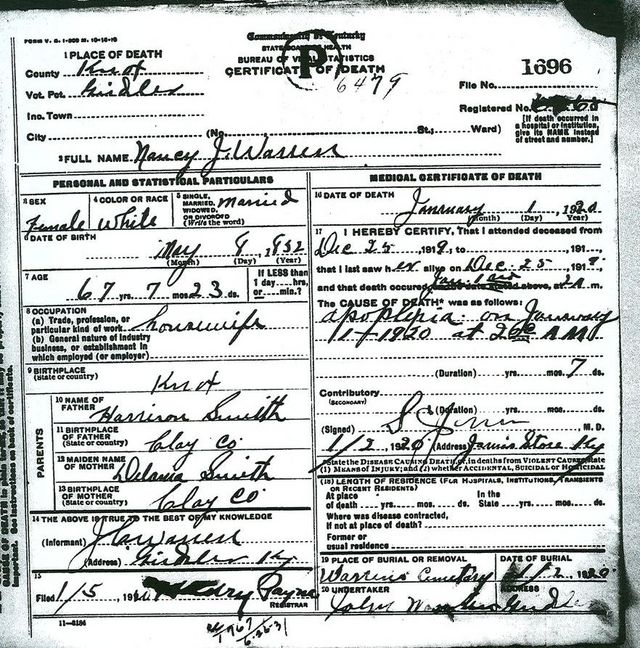 FORM V. S. 1-
Commonwealth of Kentucky
STATE BOARD OF HEALTH
BUREAU OF VITAL STATISTICS
CERTIFICATE OF DEATH
P
6479
1 PLACE OF DEATH
County Knox
Vot. Pct. Girdler
Inc. Town
City (No. St.; Ward)
File No. 1696
Registered No.
[If death occurred in a hospital or institution, give its NAME instead of street and number.]
2 FULL NAME Nancy J. Warren
PERSONAL AND STATISTICAL PARTICULARS
3 SEX Female
4 COLOR OR RACE White
5 SINGLE, MARRIED, WIDOWED, OR DIVORCED (Write the word) Married
6 DATE OF BIRTH May (Month) (Day) (Year)
7 AGE 67 yrs. 7 mos. 23 ds.
If LESS than 1 day ___ hrs. or ___ min.?
8 OCCUPATION
(a) Trade, profession, or particular kind of work housewife
(b) General nature of industry business, or establishment in which employed (or employer)
9 BIRTHPLACE (State or country) Knox
PARENTS
10 NAME OF FATHER Harrison Smith
11 BIRTHPLACE OF FATHER (State or country) Clay Co
12 MAIDEN NAME OF MOTHER Smith
13 BIRTHPLACE OF MOTHER (State or country) Clay Co
14 THE ABOVE IS TRUE TO THE BEST OF MY KNOWLEDGE
(Informant) Warren
(Address) Girdler Ky
15
Filed 1/5, 1920 Payne
REGISTRAR
11-6184
MEDICAL CERTIFICATE OF DEATH
16 DATE OF DEATH January 1, 1920
(Month) (Day) (Year)
17 I HEREBY CERTIFY, That I attended deceased from
Dec 25 1919, to 191
that I last saw her alive on Dec. 25 1919,
and that death occurred, at 2 A m.
The CAUSE OF DEATH* was as follows:
on January
1 - 1920 at A M
(Duration) yrs. mos. 7 ds.
Contributory (SECONDARY)
(Duration) yrs. mos. ds.
(Signed) M. D.
1/2 1920 (Address) Store Ky
*State the DISEASE CAUSING DEATH, or, in deaths from VIOLENT CAUSES, state (1) MEANS OF INJURY; and (2) whether ACCIDENTAL, SUICIDAL or HOMICIDAL
(18) LENGTH OF RESIDENCE (FOR HOSPITALS, INSTITUTIONS, TRANSIENTS OR RECENT RESIDENTS)
At place of death yrs. mos. ds. In the State yrs. mos. ds.
Where was disease contracted, if not at place of death?
Former or usual residence
19 PLACE OF BURIAL OR REMOVAL Warrens Cemetary
DATE OF BURIAL 1/2, 1920
20 UNDERTAKER
ADDRESS